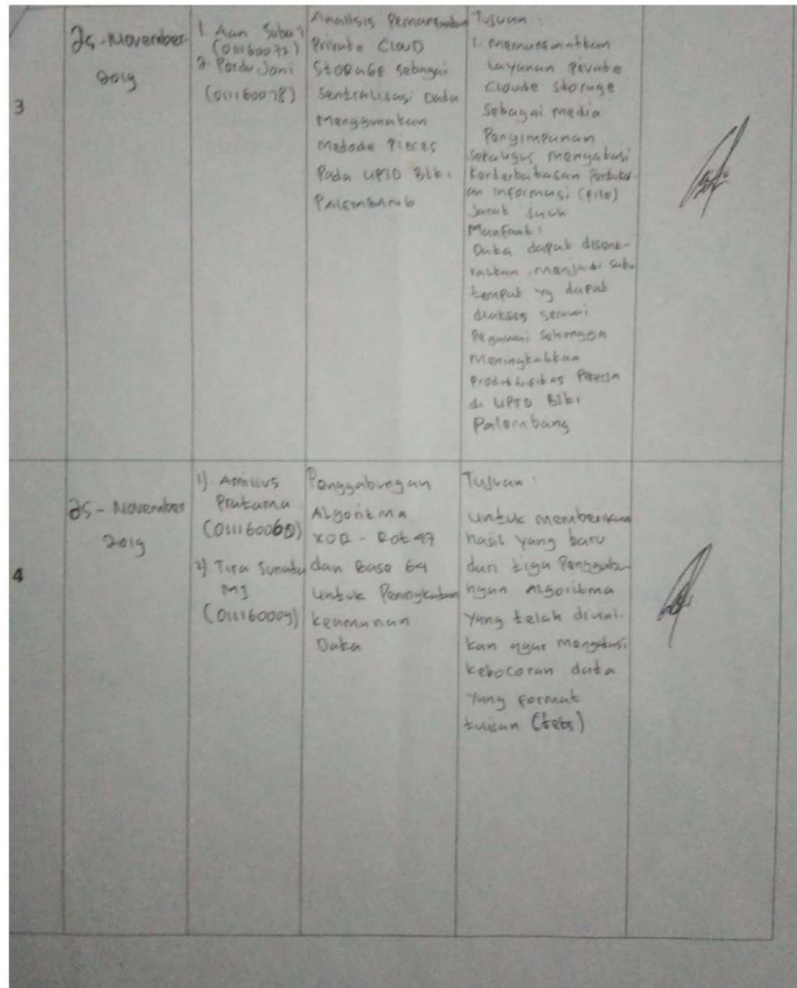 3
25-November
2019
1. Aan Suba'i
(011160072)
2. Pordu Joni
(011160078)
Analisis Pemanfaatan
Private Cloud
Storage Sebagai
Sentralisasi Data
Menggunakan
Metode Pieces
Pada UPTD Blki
Palembang
Tujuan :
1. Memanfaatkan
Layanan Private
Cloude Storage
Sebagai media
Penyimpanan
Sekaligus mengatasi
keterbatasan Pertukar-
an informasi (file)
Jarak Jauh
Manfaat :
Data dapat disent-
ralkan menjadi satu
tempat yg dapat
diakses semua
Pegawai Sehingga
Meningkatkan
Produktifitas
di UPTD Blki
Palembang
4
25 - November
2019
1). Amilius
Pratama
(011160060)
2). Tira Sunata
MJ
(011160009)
Penggabungan
Algoritma
XOR - Rot 47
dan Base 64
Untuk Peningkatan
keamanan
Data
Tujuan :
Untuk memberikan
hasil yang baru
dari tiga Penggabu-
ngan Algoritma
Yang telah diurai-
kan agar mengatasi
kebocoran data
Yang format
tulisan (teks)